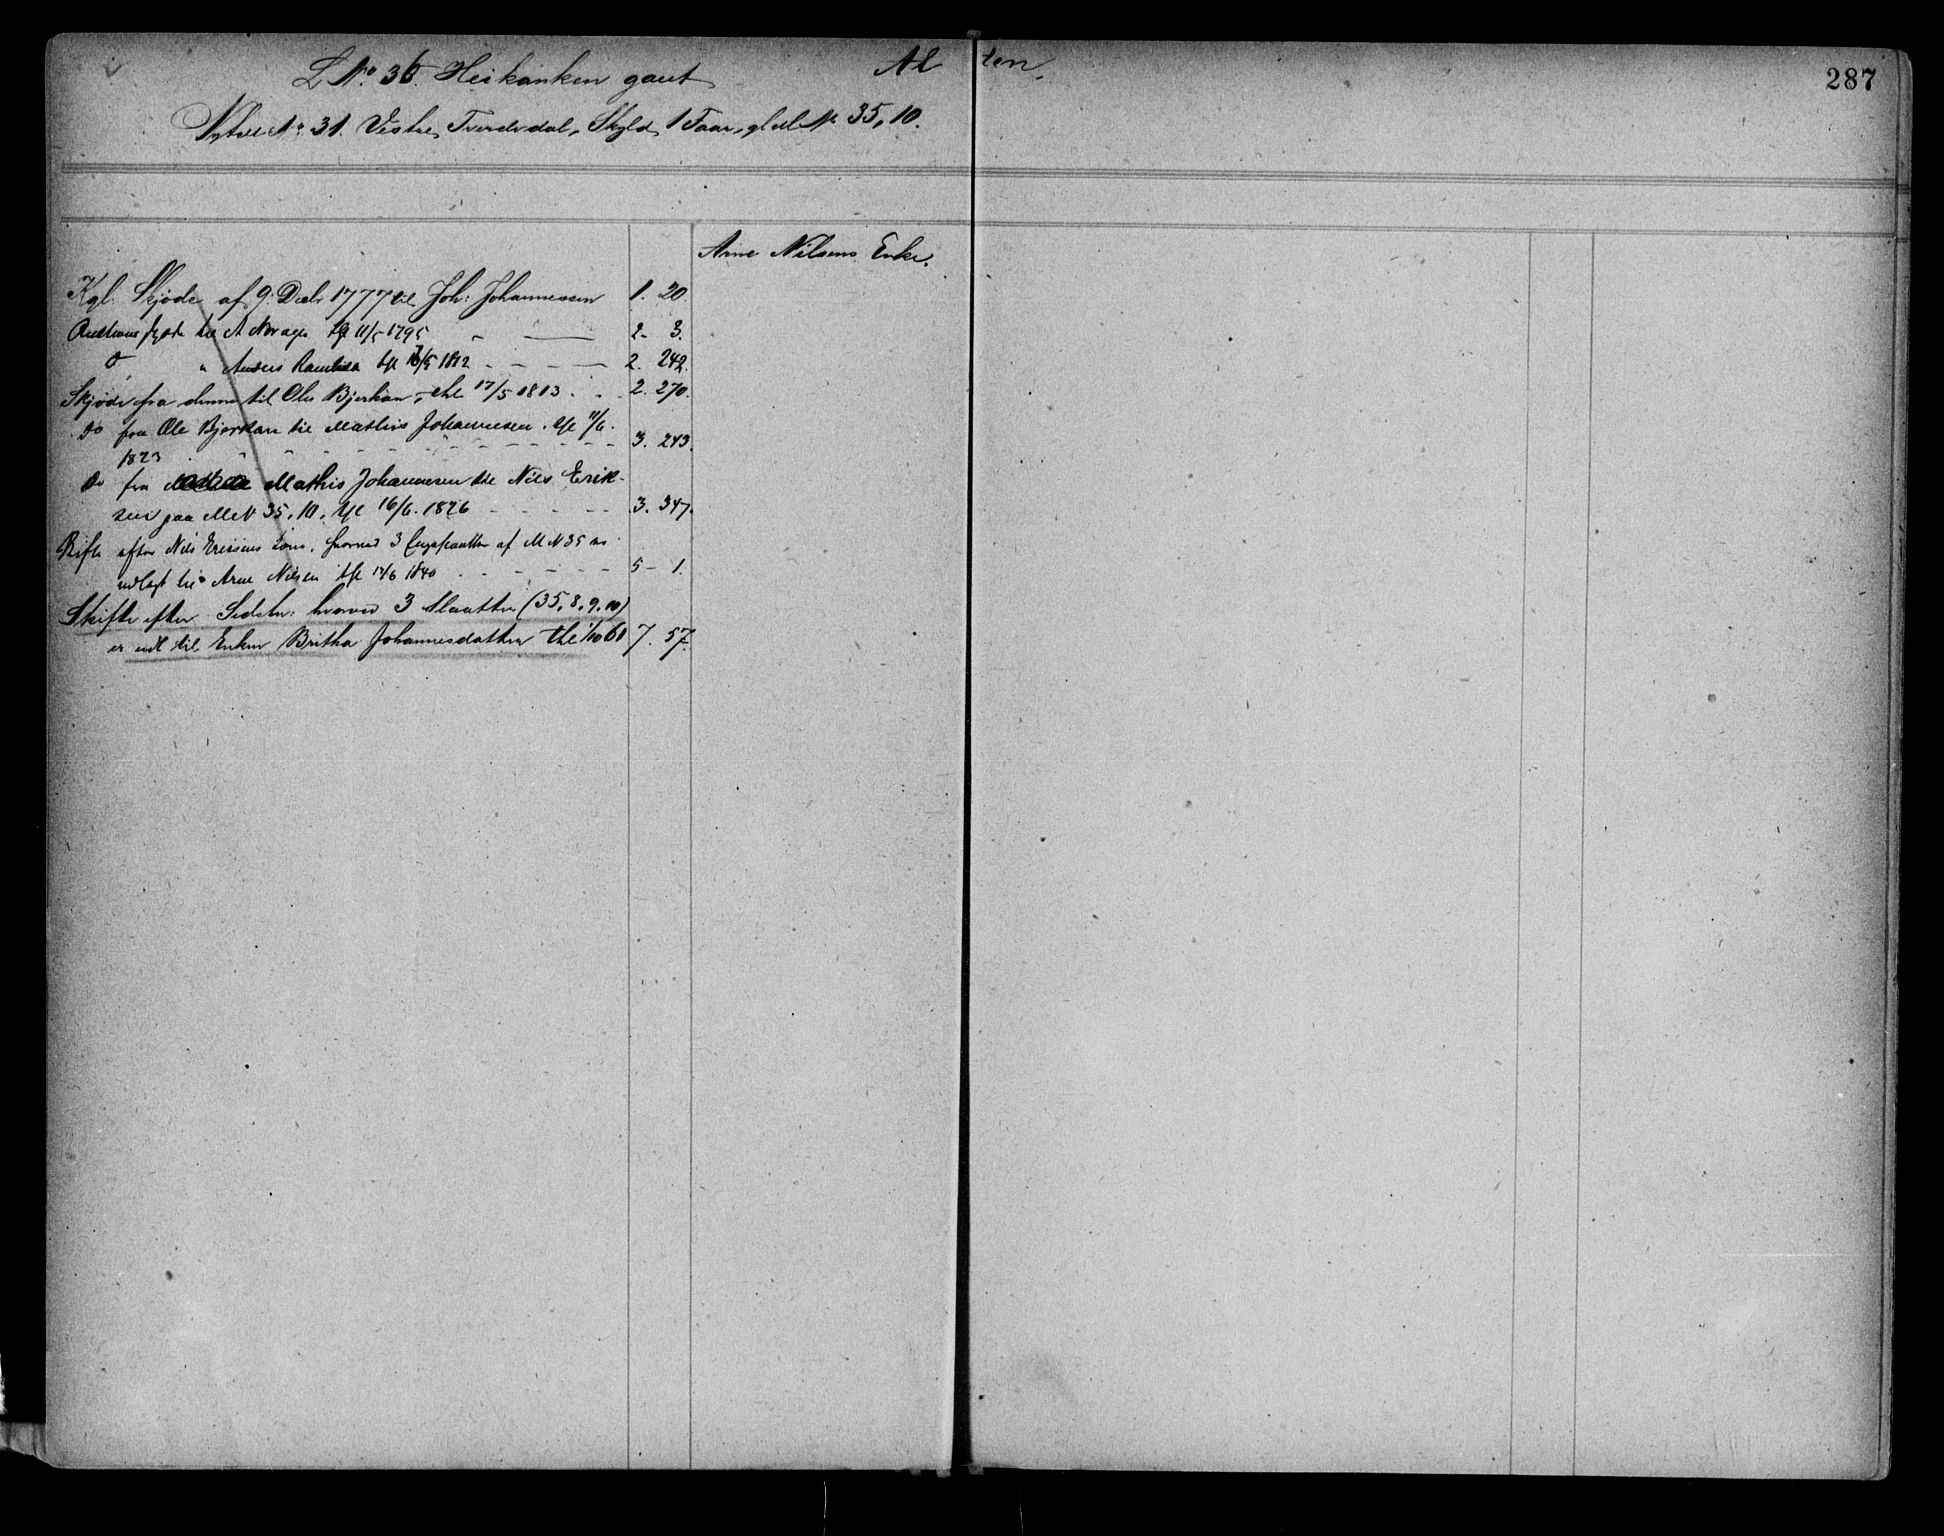 Al ten.
287
L No 36. Heikanken gaut
Nytt No 31. Vestre Tverelvdal, Skyld 1 Faar, gl M No 35,10.
Arne Nilsens Enke.
Kgl. Skjøde af 9. Decbr 1777 til Joh: Johannessen 1. 20.
Auctionsskjøde til A Norager tgl 11/5 1795 2- 3.
do " Anders tgl 1812 2. 242.
Skjøde fra denne til Ole Bjerkan, thl 17/5 1813 2. 270.
do fra Ole Bjerkan til Mathis Johannesen. tgl 11/6.
1823 3. 243.
do fra Mathis Johannesen til Nils Erik-
sen paa M N 35,10, tgl 16/6. 1826 3. 347.
Skifte efter Nils Ericsens, hvorved 3 af M N 35 er
udlagt til Arne Nilsen tgl 17/6 1840 5- 1.
Skifte efter Sidstn: hvorved 3 Slaatter (35,8,9,10)
er udl til Enken Britha Johannesdatter thl 1/10 60 7. 57.